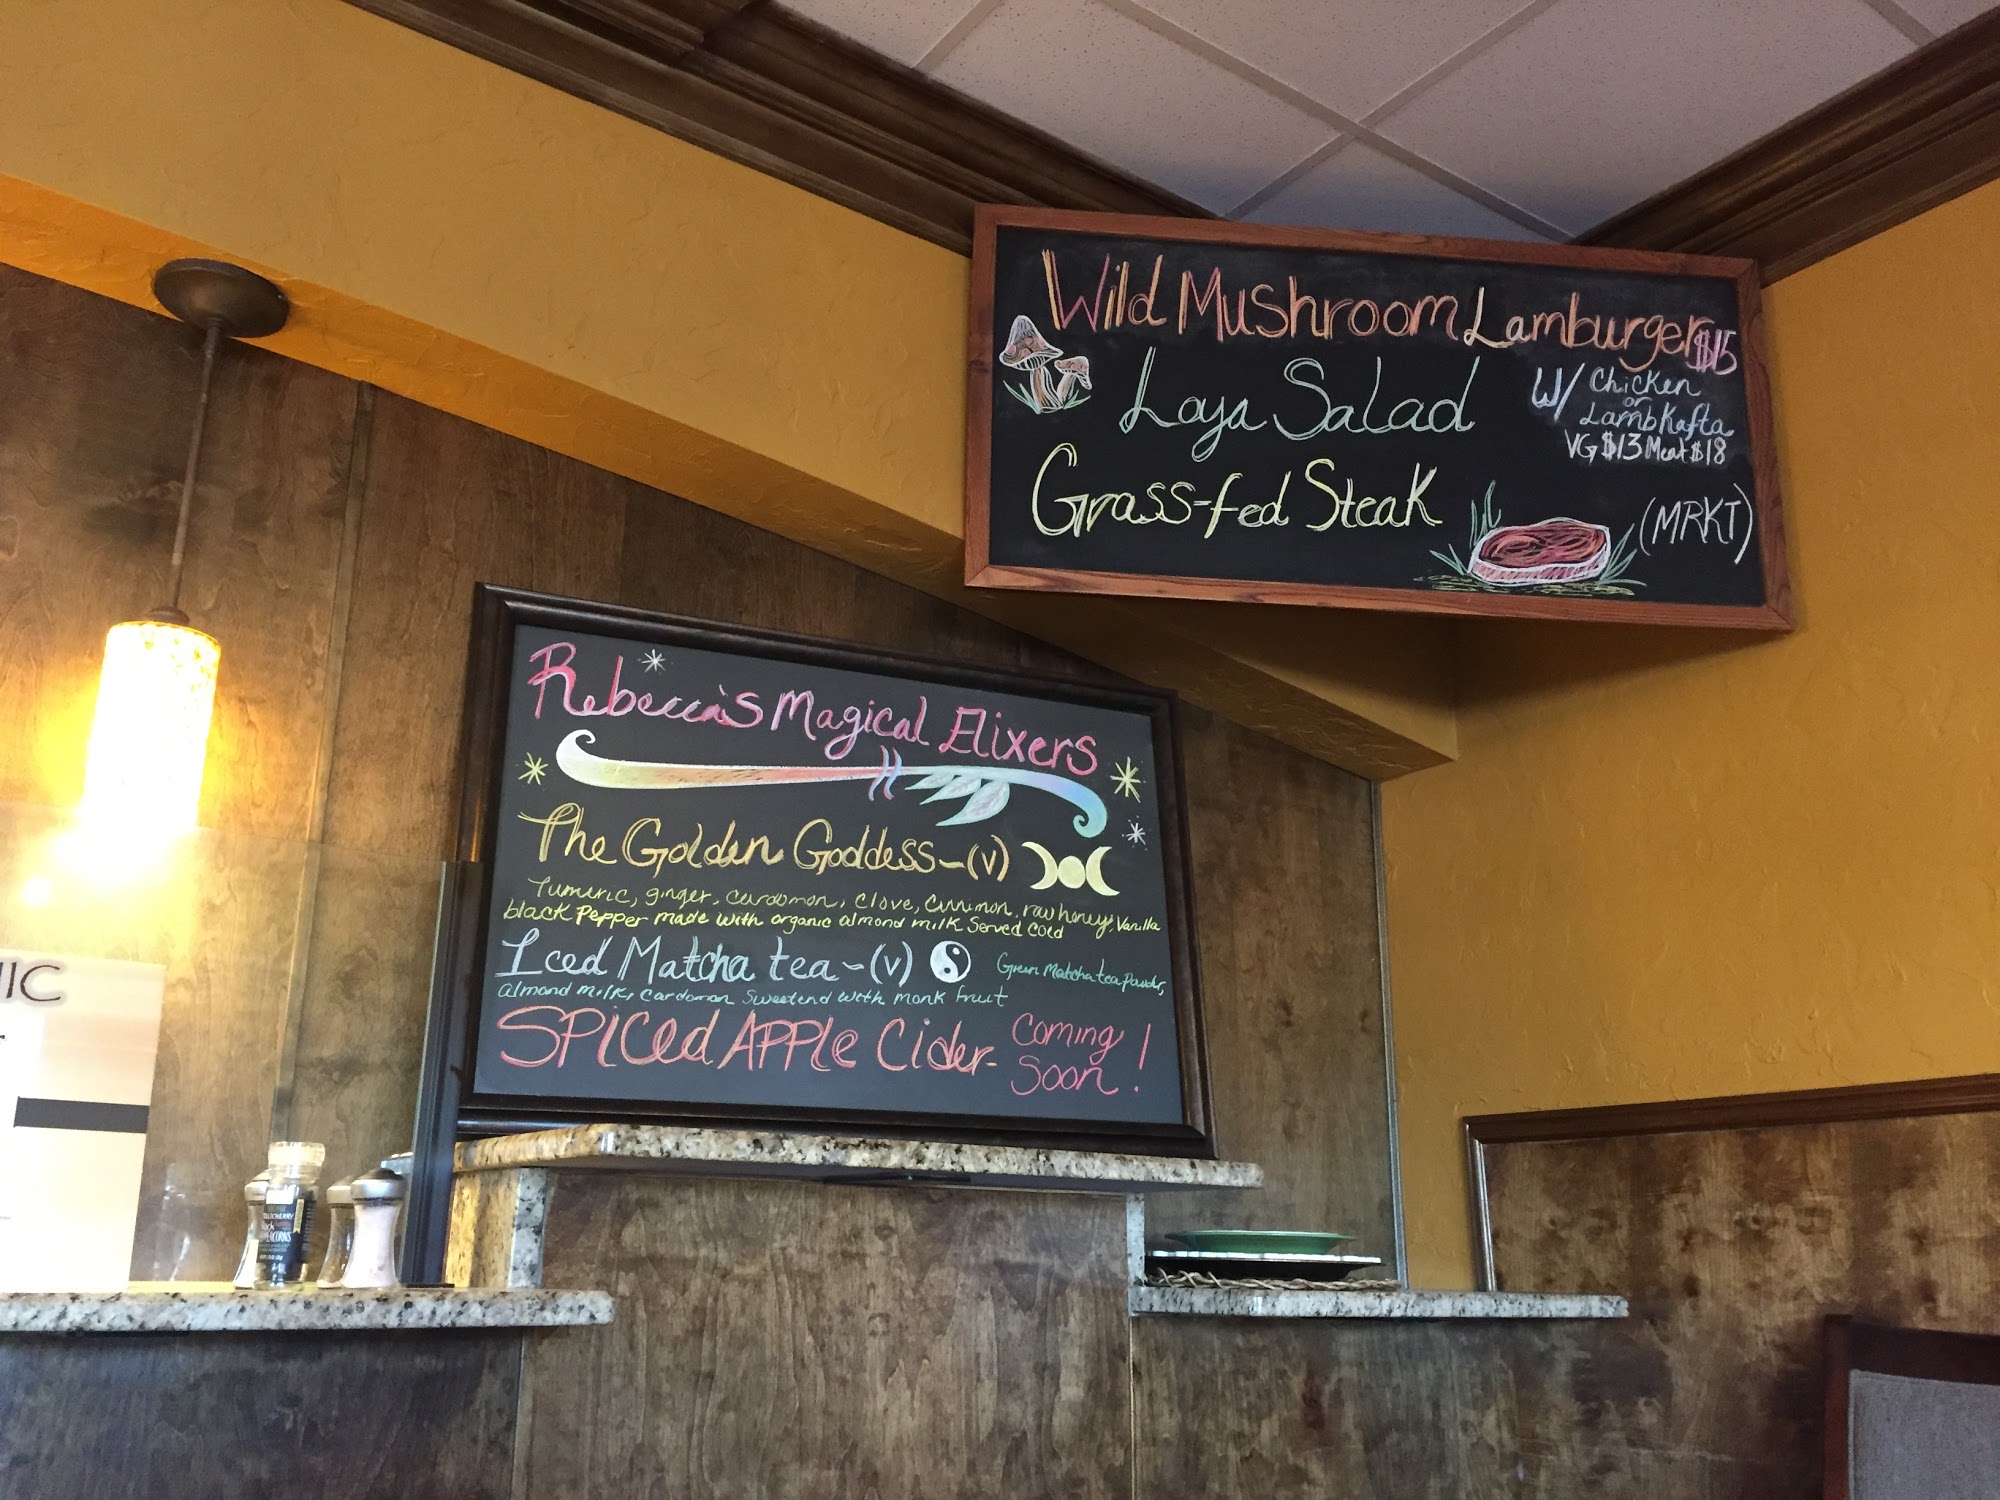 Wild Mushroom Lamburger $15
Loya Salad
W/ Chicken
or
Lamb Kafta
VG $13 Meat $18
Grass-fed Steak
(MRKT)
Rebecca's Magical Elixers
The Golden Goddess-(v)
Tumeric, ginger, cardomon, clove, cinnimon, raw honey, Vanilla
black Pepper made with organic almond milk Served cold
Iced Matcha tea-(v)
Green Matcha tea Powder,
almond milk, Cardomon Sweetend with monk fruit
SPiced APPle Cider-
Coming
Soon!
NIC